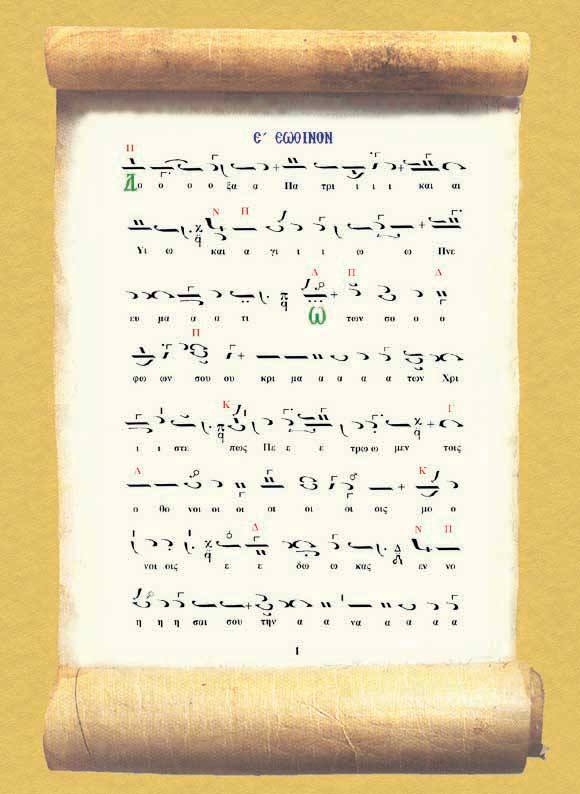 Ε΄ ΕΩΘΙΝΟΝ
Π
Δο ο ο ο ξα α Πα τρι ι ι ι και αι
Ν Π
Υι ω και α γι ι ι ω ω Πνε
Δ Π Δ
ευ μα α α τι Ω των σο ο ο
Π
φω ων σου ου κρι μα α α α α των Χρι
Κ Γ
ι ι στε πως Πε ε ε τρω ω μεν τοις
Δ Κ
ο θο νοι οι οι οι οι οι οις μο ο
Δ Ν Π
νοι οις ε ε δω ω κας εν νο
η η η σαι σου την α α να α α α α
1